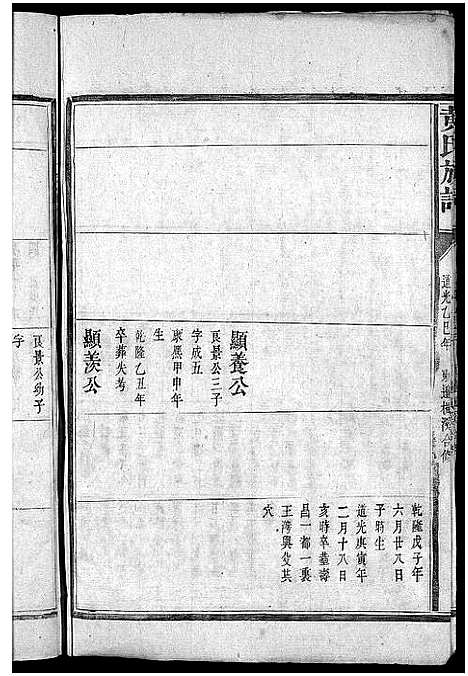 黃氏族譜
道光乙巳年
乾隆戊子年
六月廿八日
子時生
道光庚寅年
二月十八日
亥時卒墓壽
昌一都一裏
王灣與父共
穴
顯養公
良景公三子
字成五
康熙甲申年
生
乾隆乙丑年
卒葬失考
顯羨公
良景公幼子
字